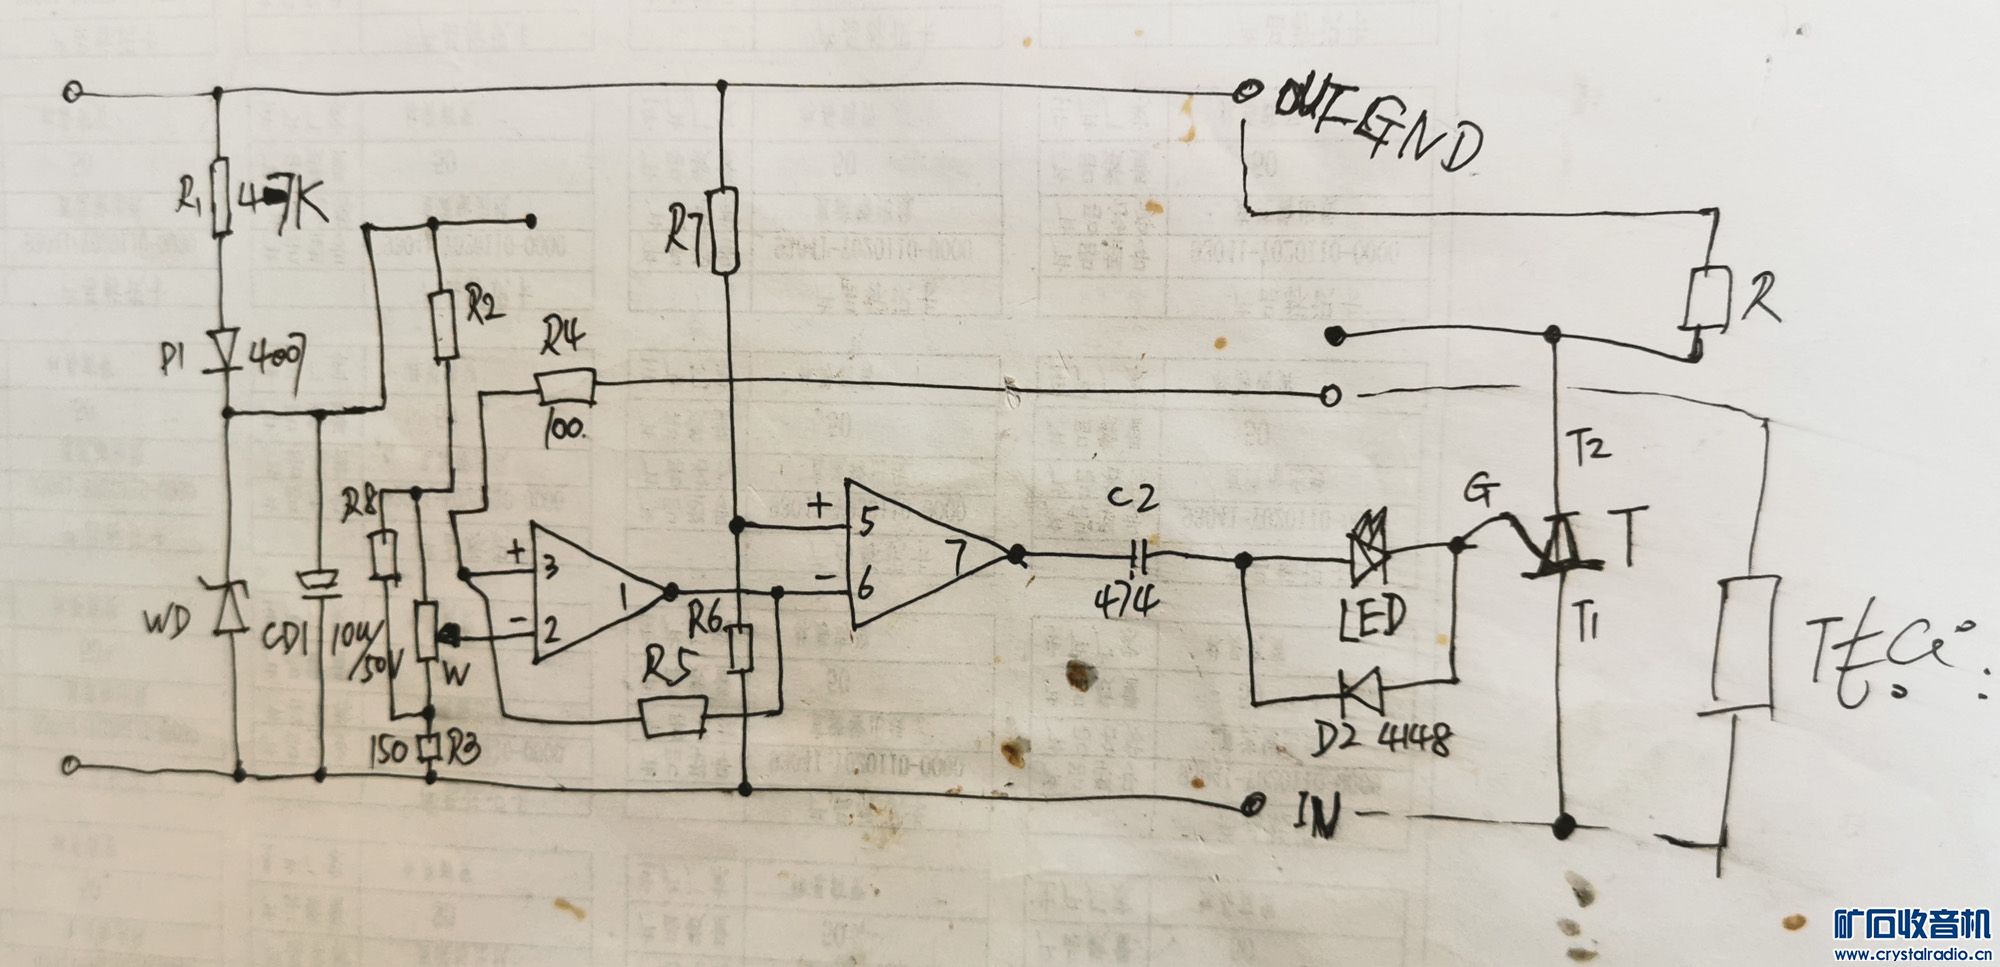 OUT GND
R1 47K
R7
R2
R
D1 4007
R4
100
T2
G
C2
R8
+
5
+
3
7
T
474
1
-
6
LED
T1
WD
CD1 10u/50V
-
2
R6
W
R5
150 R3
D2 4148
IN
矿石收音机
www.crystalradio.cn